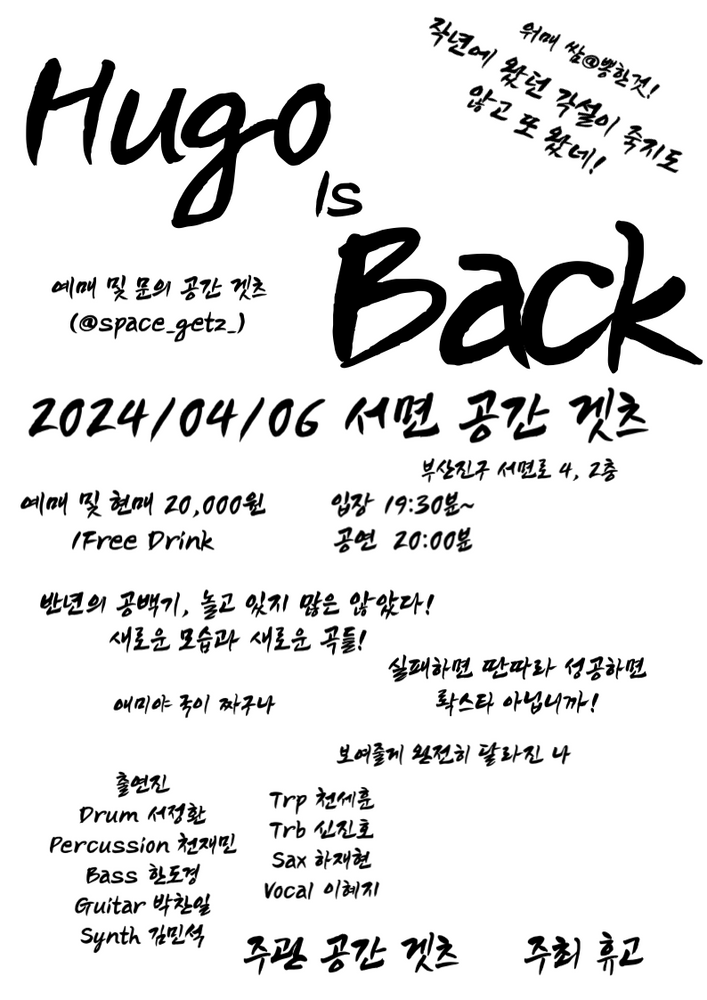 위매 쌈@뽕한것!
작년에 왔던 각설이 죽지도
않고 또 왔네!
Hugo
Is
Back
예매 및 문의 공간 겟츠
(@space_getz_)
2024/04/06 서면 공간 겟츠
부산진구 서면로 4, 2층
예매 및 현매 20,000원
1Free Drink
입장 19:30분~
공연 20:00분
반년의 공백기, 놀고 있지 많은 않았다!
새로운 모습과 새로운 곡들!
실패하면 딴따라 성공하면
롹스타 아닙니까!
애미야 국이 짜구나
보여줄게 완전히 달라진 나
출연진
Drum 서정환
Percussion 천재민
Bass 한도경
Guitar 박찬일
Synth 김민석
Trp 천세훈
Trb 신진호
Sax 하재현
Vocal 이혜지
주관 공간 겟츠
주최 휴고